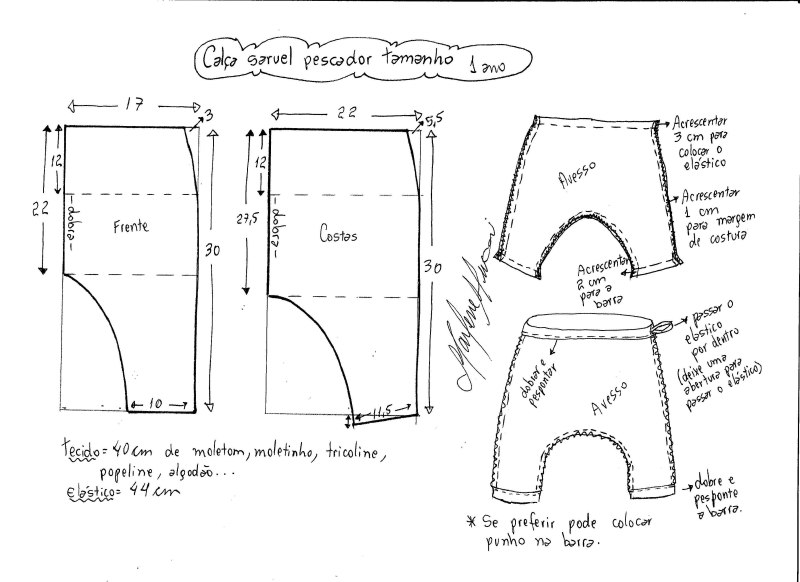 Calça saruel pescador tamanho 1 ano
17
3
12
22
-dobra-
Frente
30
10
22
5,5
12
27,5
-dobra-
Costas
30
11,5
Tecido = 40 cm de moletom, moletinho, tricoline,
popeline, algodão...
Elástico = 44 cm
Avesso
Acrescentar
3 cm para
colocar o
elástico
Acrescentar
1 cm
para margem
de costura
Acrescentar
2 cm
para a
barra
Marlene Mukai
Avesso
dobrar e
pespontar
passar o
elástico
por dentro
(deixe uma
abertura para
passar o elástico)
dobre e
pesponte
a barra.
* Se preferir pode colocar
punho na barra.